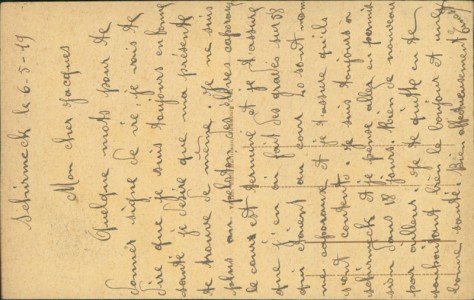 Schirmeck le 6-5-19
Mon cher Jacques
Quelque mots pour te
donner signe de vie, je vais te
dire que je suis toujours en bonne
santé je désire que ma présente
te trouve de même. Je ne suis
plus au peloton des élèves caporaux
le cours est terminé et je t'assure
que j'en ai fait des graves sur 58
qui étaient au cour 20 sont nom
mé caporaux et je t'assure qu'ils
sont content. Je suis toujours a
schirmeck et je pense aller en permis
sion dans 18 jours. Rien de nouveau
par ailleurs. Je te quitte en te
souhaitant bien le bonjour et meil
bonne santé. Bien affectueusement